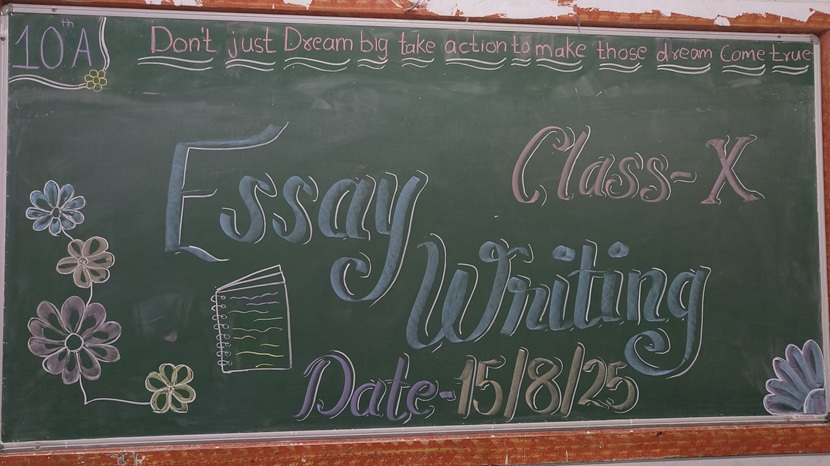 10th A
Don't just Dream big take action to make those dream Come true
Class-X
Essay
Writing
Date-15/8/25